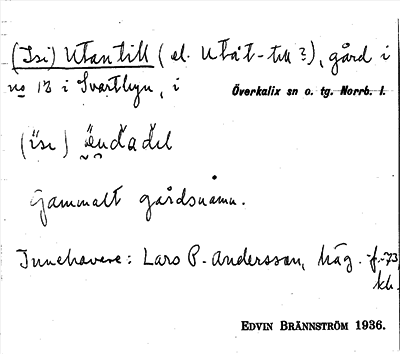 (Isi) Utantill (el. Utåt-till?), gård i
no 13 i Svartbyn, i Överkalix sn o. tg. Norrb. l.
(ïsi)
Gammalt gårdsnamn.
Innehavare: Lars P. Andersson, häg. f.-73,
kh.
EDVIN BRÄNNSTRÖM 1936.